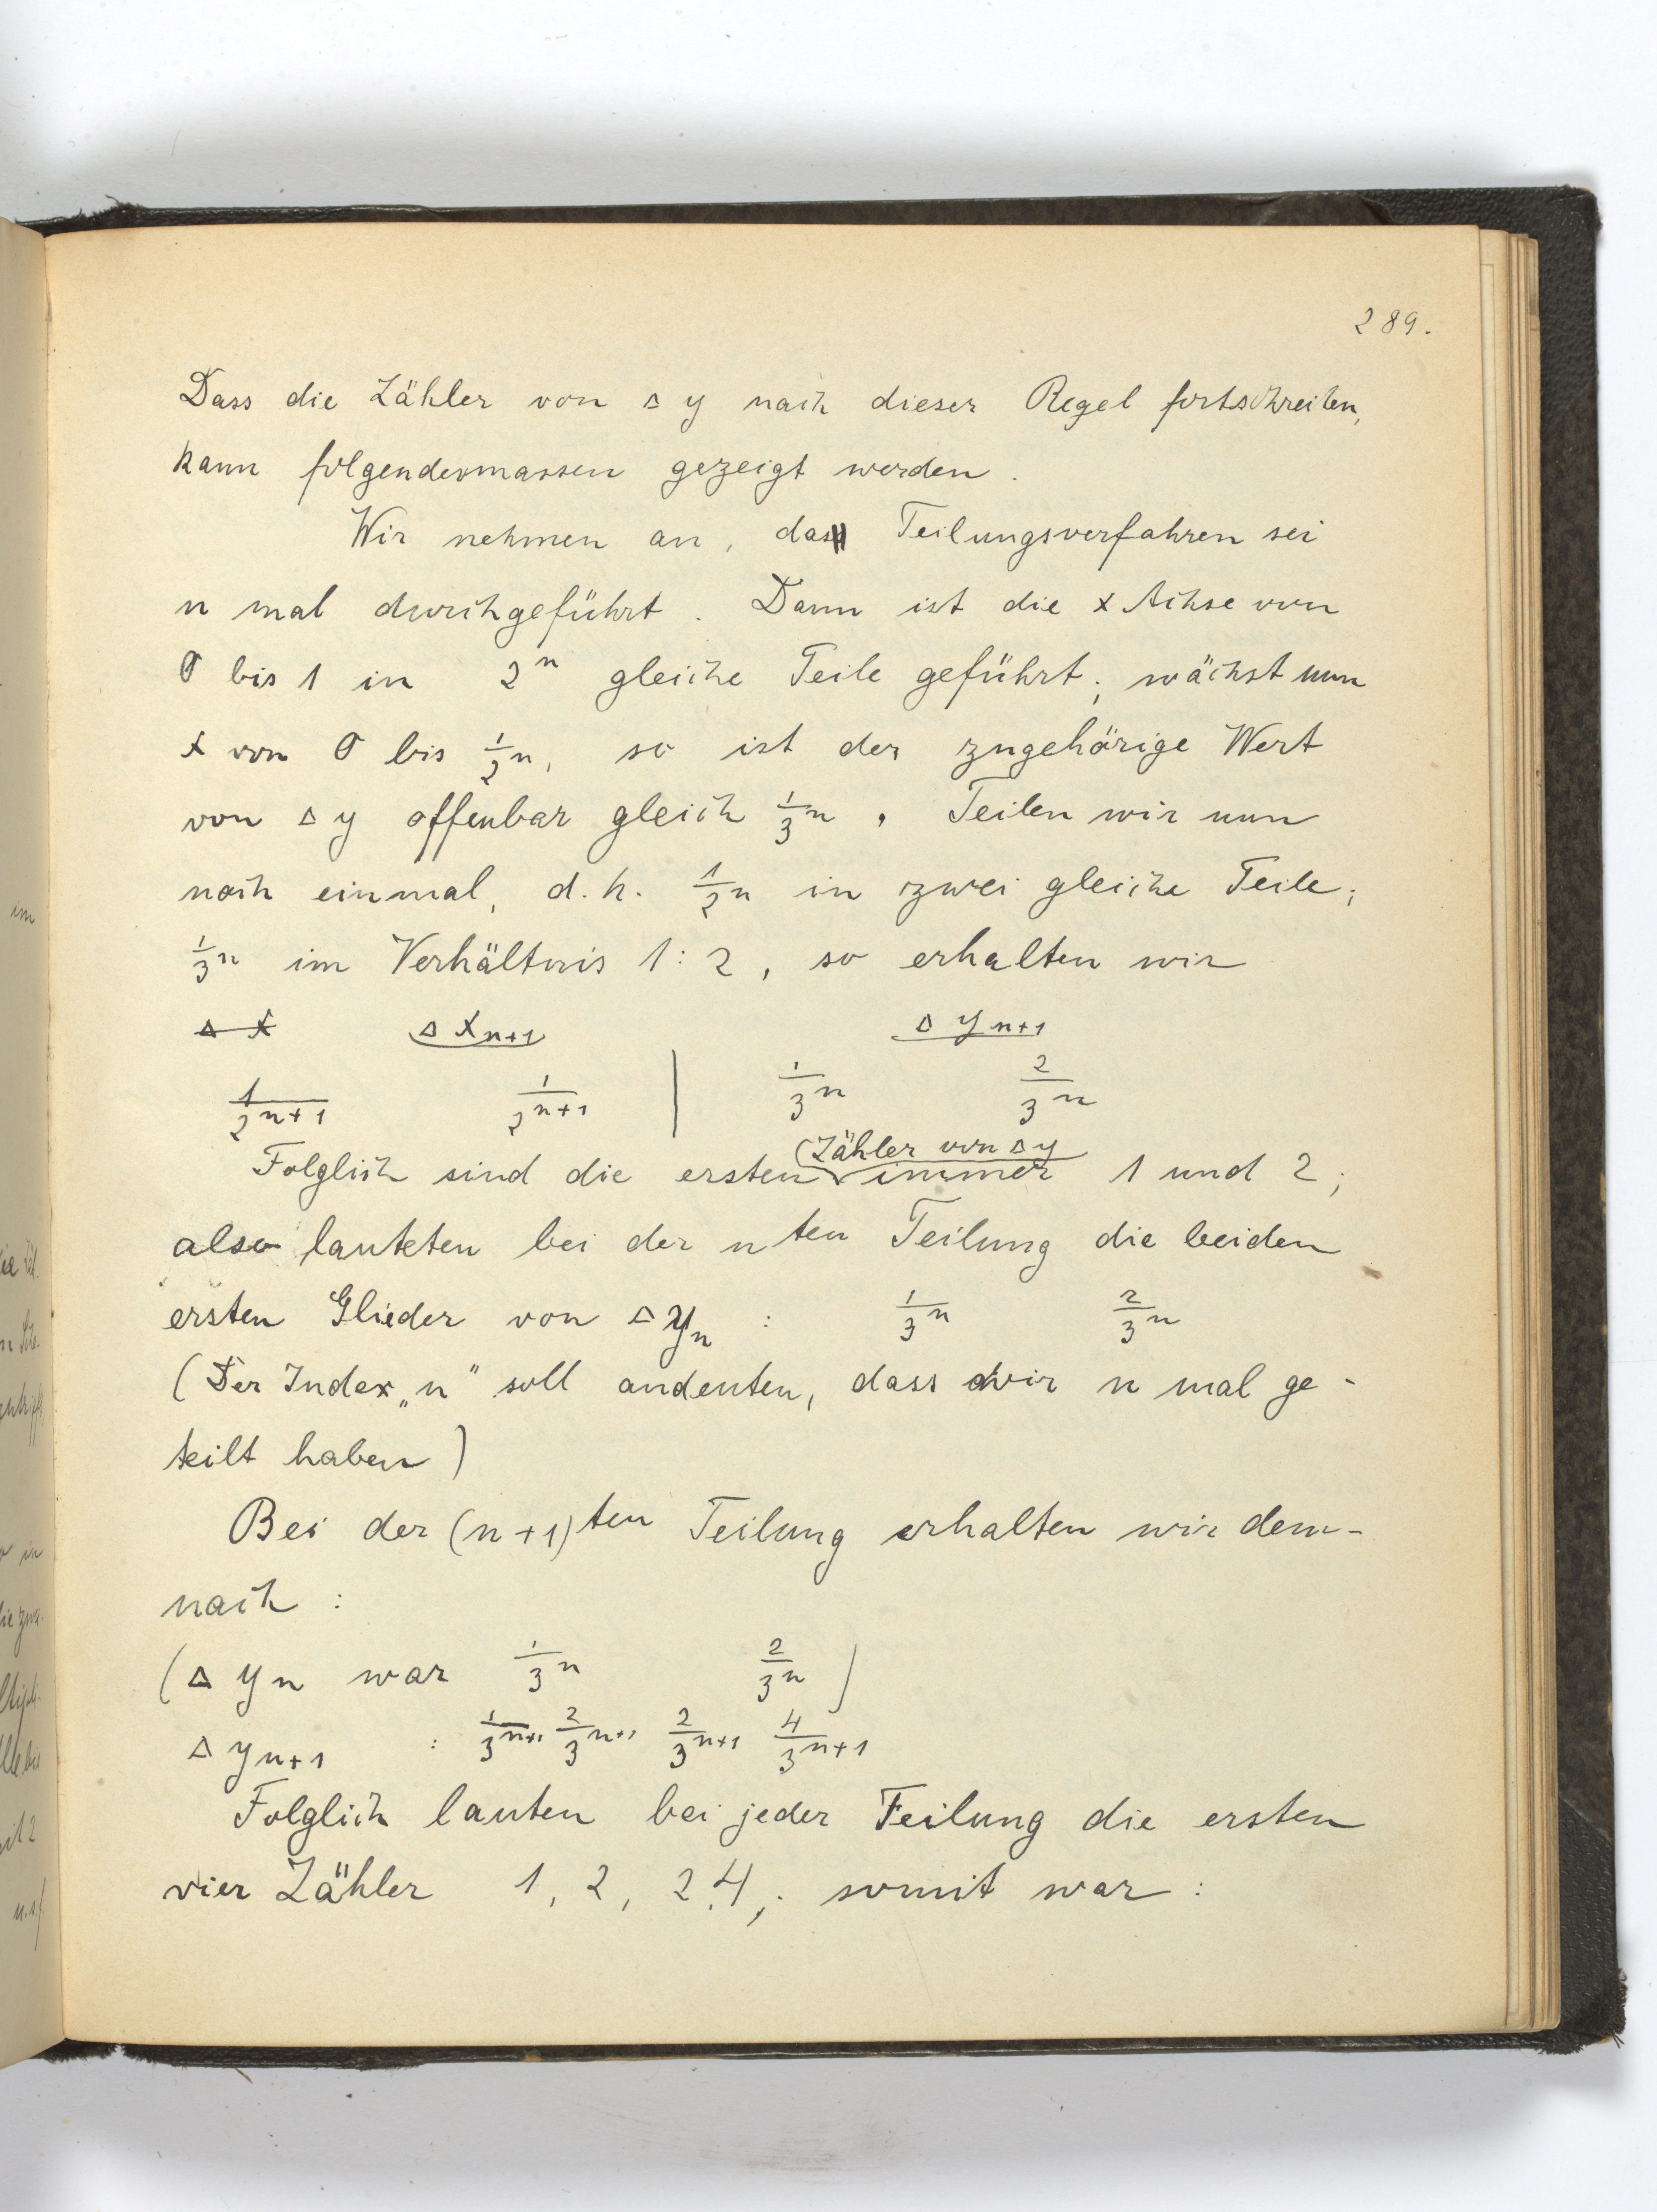 289.
Dass die Zähler von Δ y nach dieser Regel fortschreiten,
kann folgendermassen gezeigt werden.
Wir nehmen an, das Teilungsverfahren sei
n mal durchgeführt. Dann ist die x Achse von
0 bis 1 in 2^n gleiche Teile geführt; wächst nun
x von 0 bis 1/2^n, so ist der zugehörige Wert
von Δ y offenbar gleich 1/3^n. Teilen wir nun
noch einmal, d.h. 1/2^n in zwei gleiche Teile;
1/3^n im Verhältnis 1:2, so erhalten wir
Δ x Δ x_{n+1} Δ y_{n+1}
1/2^{n+1} 1/2^{n+1} | 1/3^n 2/3^n
(Zähler von Δ y
Folglich sind die ersten immer 1 und 2;
also lauteten bei der n ten Teilung die beiden
ersten Glieder von Δ y_n : 1/3^n 2/3^n
(Der Index „n" soll andeuten, dass wir n mal ge-
teilt haben)
Bei der (n+1)ten Teilung erhalten wir dem-
nach :
(Δ y_n war 1/3^n 2/3^n)
Δ y_{n+1} : 1/3^{n+1} 2/3^{n+1} 2/3^{n+1} 4/3^{n+1}
Folglich lauten bei jeder Teilung die ersten
vier Zähler 1, 2, 2, 4; somit war :